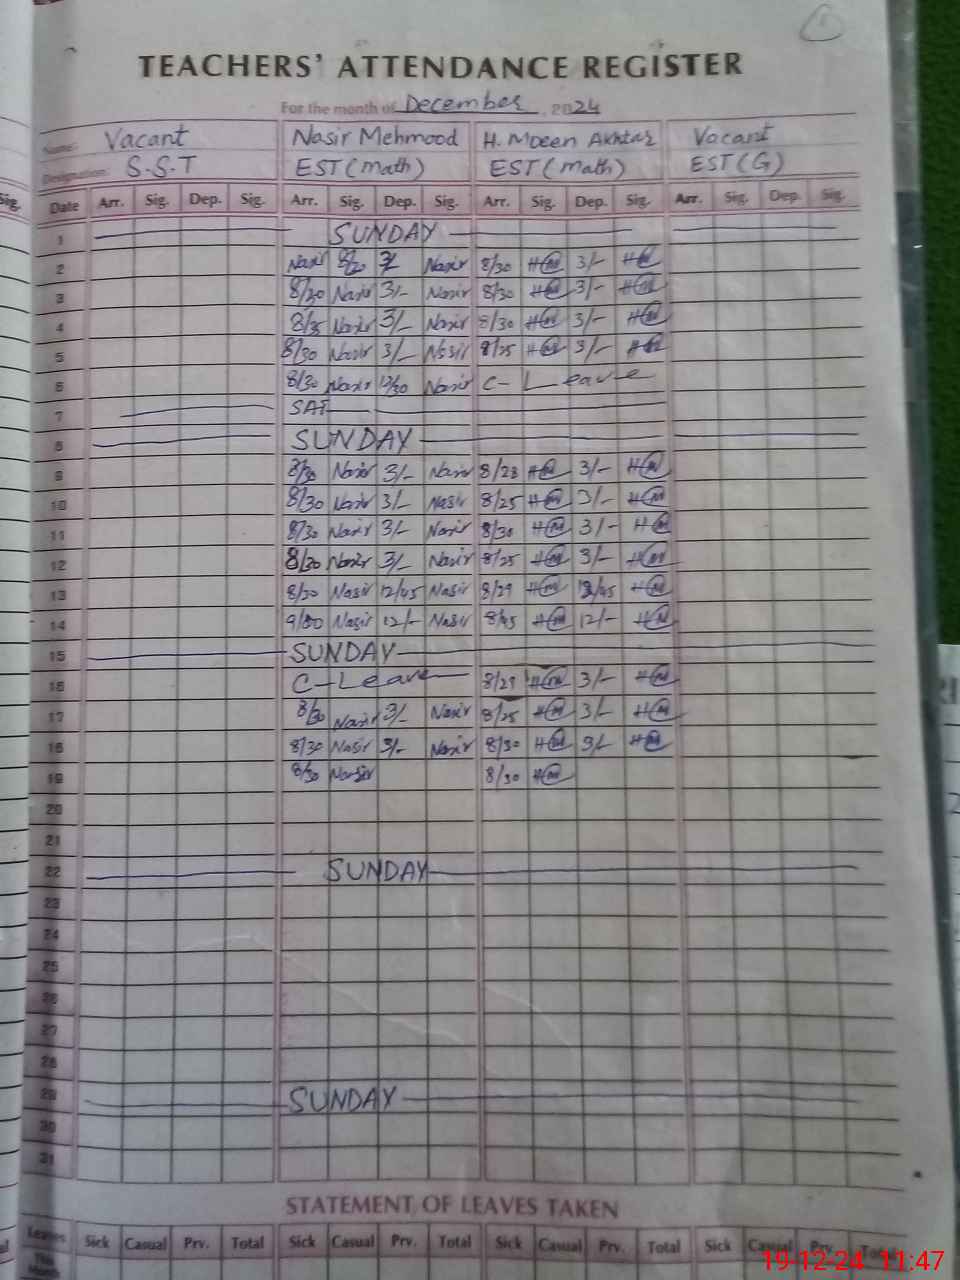 TEACHERS' ATTENDANCE REGISTER
For the month of December, 2024
Name: Vacant Nasir Mehmood H. Moeen Akhtar Vacant
Designation: S.S.T EST (math) EST (math) EST (G)
Date Arr. Sig. Dep. Sig. Arr. Sig. Dep. Sig. Arr. Sig. Dep. Sig. Arr. Sig. Dep. Sig.
1 SUNDAY
2 Nasir 8/30 3/ Nasir 8/30 H(M) 3/- H(M)
3 8/30 Nasir 3/- Nasir 8/30 H(M) 3/- H(M)
4 8/35 Nasir 3/- Nasir 8/30 H(M) 3/- H(M)
5 8/30 Nasir 3/- Nasir 8/25 H(M) 3/- H(M)
6 8/30 Nasir 12/30 Nasir C-Leave
7 SAT
8 SUNDAY
9 8/30 Nasir 3/- Nasir 8/28 H(M) 3/- H(M)
10 8/30 Nasir 3/- Nasir 8/25 H(M) 3/- H(M)
11 8/30 Nasir 3/- Nasir 8/30 H(M) 3/- H(M)
12 8/30 Nasir 3/- Nasir 8/25 H(M) 3/- H(M)
13 8/30 Nasir 12/45 Nasir 8/29 H(M) 12/45 H(M)
14 9/00 Nasir 12/- Nasir 8/45 H(M) 12/- H(M)
15 SUNDAY
16 C-Leave 8/29 H(M) 3/- H(M)
17 8/30 Nasir 3/- Nasir 8/25 H(M) 3/- H(M)
18 8/30 Nasir 3/- Nasir 8/30 H(M) 3/- H(M)
19 8/30 Nasir 8/30 H(M)
20
21
22 SUNDAY
23
24
25
26
27
28
29 SUNDAY
30
31
STATEMENT OF LEAVES TAKEN
Leaves Sick Casual Prv. Total Sick Casual Prv. Total Sick Casual Prv. Total Sick Casual Prv. Total
This Month
19-12-24 11:47